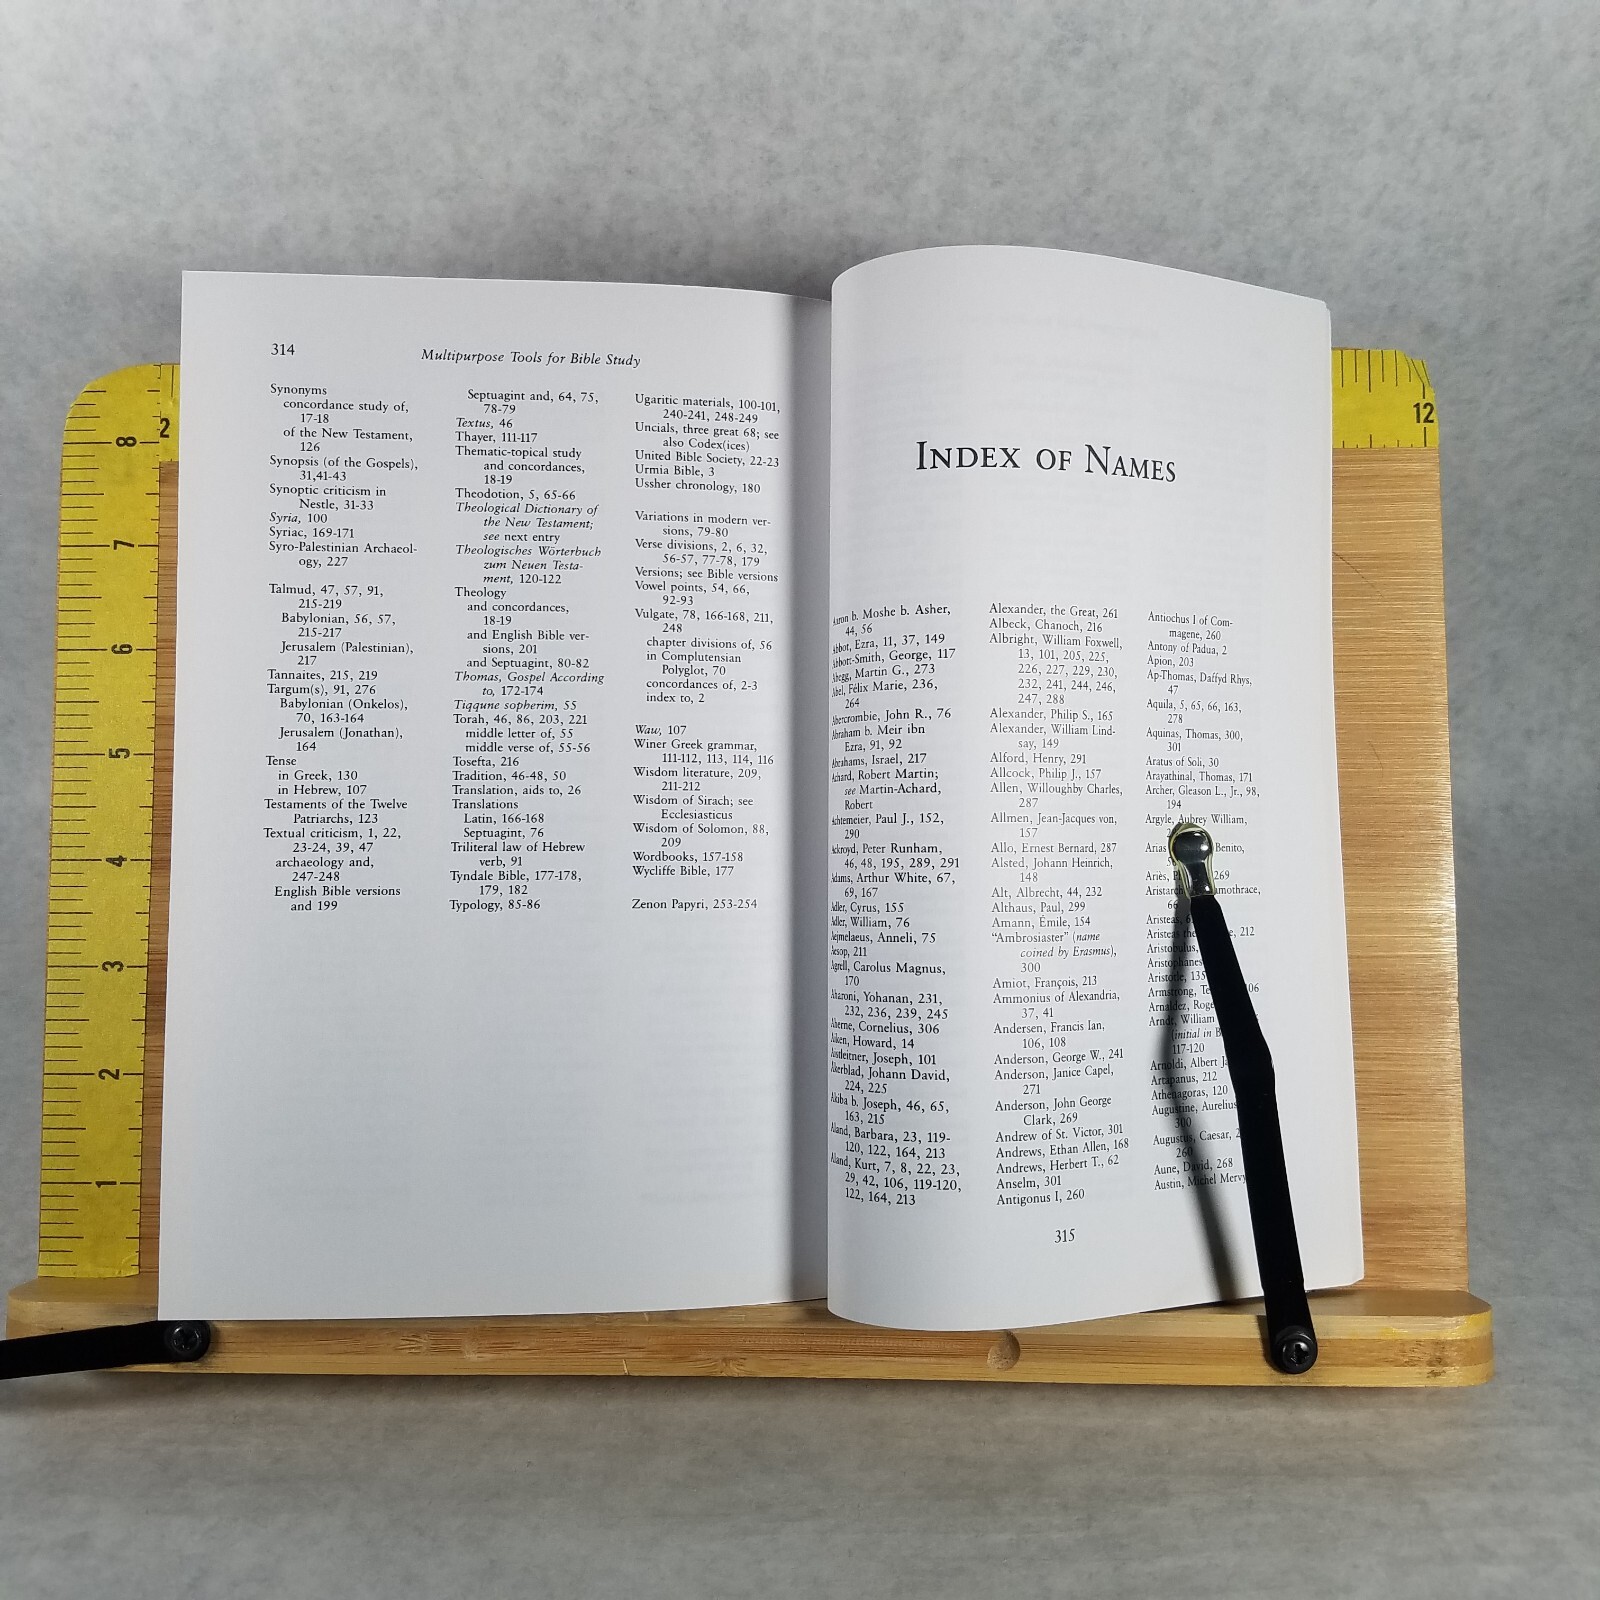 314
Multipurpose Tools for Bible Study
Synonyms
concordance study of,
17-18
of the New Testament,
126
Synopsis (of the Gospels),
31,41-43
Synoptic criticism in
Nestle, 31-33
Syria, 100
Syriac, 169-171
Syro-Palestinian Archaeol-
ogy, 227
Talmud, 47, 57, 91,
215-219
Babylonian, 56, 57,
215-217
Jerusalem (Palestinian),
217
Tannaites, 215, 219
Targum(s), 91, 276
Babylonian (Onkelos),
70, 163-164
Jerusalem (Jonathan),
164
Tense
in Greek, 130
in Hebrew, 107
Testaments of the Twelve
Patriarchs, 123
Textual criticism, 1, 22,
23-24, 39, 47
archaeology and,
247-248
English Bible versions
and 199
Septuagint and, 64, 75,
78-79
Textus, 46
Thayer, 111-117
Thematic-topical study
and concordances,
18-19
Theodotion, 5, 65-66
Theological Dictionary of
the New Testament;
see next entry
Theologisches Wörterbuch
zum Neuen Testa-
ment, 120-122
Theology
and concordances,
18-19
and English Bible ver-
sions, 201
and Septuagint, 80-82
Thomas, Gospel According
to, 172-174
Tiqqune sopherim, 55
Torah, 46, 86, 203, 221
middle letter of, 55
middle verse of, 55-56
Tosefta, 216
Tradition, 46-48, 50
Translation, aids to, 26
Translations
Latin, 166-168
Septuagint, 76
Triliteral law of Hebrew
verb, 91
Tyndale Bible, 177-178,
179, 182
Typology, 85-86
Ugaritic materials, 100-101,
240-241, 248-249
Uncials, three great 68; see
also Codex(ices)
United Bible Society, 22-23
Urmia Bible, 3
Ussher chronology, 180
Variations in modern ver-
sions, 79-80
Verse divisions, 2, 6, 32,
56-57, 77-78, 179
Versions; see Bible versions
Vowel points, 54, 66,
92-93
Vulgate, 78, 166-168, 211,
248
chapter divisions of, 56
in Complutensian
Polyglot, 70
concordances of, 2-3
index to, 2
Waw, 107
Winer Greek grammar,
111-112, 113, 114, 116
Wisdom literature, 209,
211-212
Wisdom of Sirach; see
Ecclesiasticus
Wisdom of Solomon, 88,
209
Wordbooks, 157-158
Wycliffe Bible, 177
Zenon Papyri, 253-254
INDEX OF NAMES
Aaron b. Moshe b. Asher,
44, 56
Abbot, Ezra, 11, 37, 149
Abbott-Smith, George, 117
Abegg, Martin G., 273
Abel, Félix Marie, 236,
264
Abercrombie, John R., 76
Abraham b. Meir ibn
Ezra, 91, 92
Abrahams, Israel, 217
Achard, Robert Martin;
see Martin-Achard,
Robert
Achtemeier, Paul J., 152,
290
Ackroyd, Peter Runham,
46, 48, 195, 289, 291
Adams, Arthur White, 67,
69, 167
Adler, Cyrus, 155
Adler, William, 76
Aejmelaeus, Anneli, 75
Aesop, 211
Agrell, Carolus Magnus,
170
Aharoni, Yohanan, 231,
232, 236, 239, 245
Aherne, Cornelius, 306
Aiken, Howard, 14
Aistleitner, Joseph, 101
Akerblad, Johann David,
224, 225
Akiba b. Joseph, 46, 65,
163, 215
Aland, Barbara, 23, 119-
120, 122, 164, 213
Aland, Kurt, 7, 8, 22, 23,
29, 42, 106, 119-120,
122, 164, 213
Alexander, the Great, 261
Albeck, Chanoch, 216
Albright, William Foxwell,
13, 101, 205, 225,
226, 227, 229, 230,
232, 241, 244, 246,
247, 288
Alexander, Philip S., 165
Alexander, William Lind-
say, 149
Alford, Henry, 291
Allcock, Philip J., 157
Allen, Willoughby Charles,
287
Allmen, Jean-Jacques von,
157
Allo, Ernest Bernard, 287
Alsted, Johann Heinrich,
148
Alt, Albrecht, 44, 232
Althaus, Paul, 299
Amann, Émile, 154
"Ambrosiaster" (name
coined by Erasmus),
300
Amiot, François, 213
Ammonius of Alexandria,
37, 41
Andersen, Francis Ian,
106, 108
Anderson, George W., 241
Anderson, Janice Capel,
271
Anderson, John George
Clark, 269
Andrew of St. Victor, 301
Andrews, Ethan Allen, 168
Andrews, Herbert T., 62
Anselm, 301
Antigonus I, 260
Antiochus I of Com-
magene, 260
Antony of Padua, 2
Apion, 203
Ap-Thomas, Daffyd Rhys,
47
Aquila, 5, 65, 66, 163,
278
Aquinas, Thomas, 300,
301
Aratus of Soli, 30
Arayathinal, Thomas, 171
Archer, Gleason L., Jr., 98,
194
Argyle, Aubrey William,
Arias Benito,
Ariès, 269
66
Aristeas,
Aristeas the 212
Aristobulus,
Aristophanes
Aristotle, 135
Armstrong, 106
Arnaldez,
Arndt, William
(initial in
117-120
Arnoldi, Albert
Artapanus, 212
Athenagoras, 120
Augustine, Aurelius
300
Augustus, Caesar,
260
Aune, David, 268
Austin, Michel
315
8
7
6
5
4
3
2
1
2
12